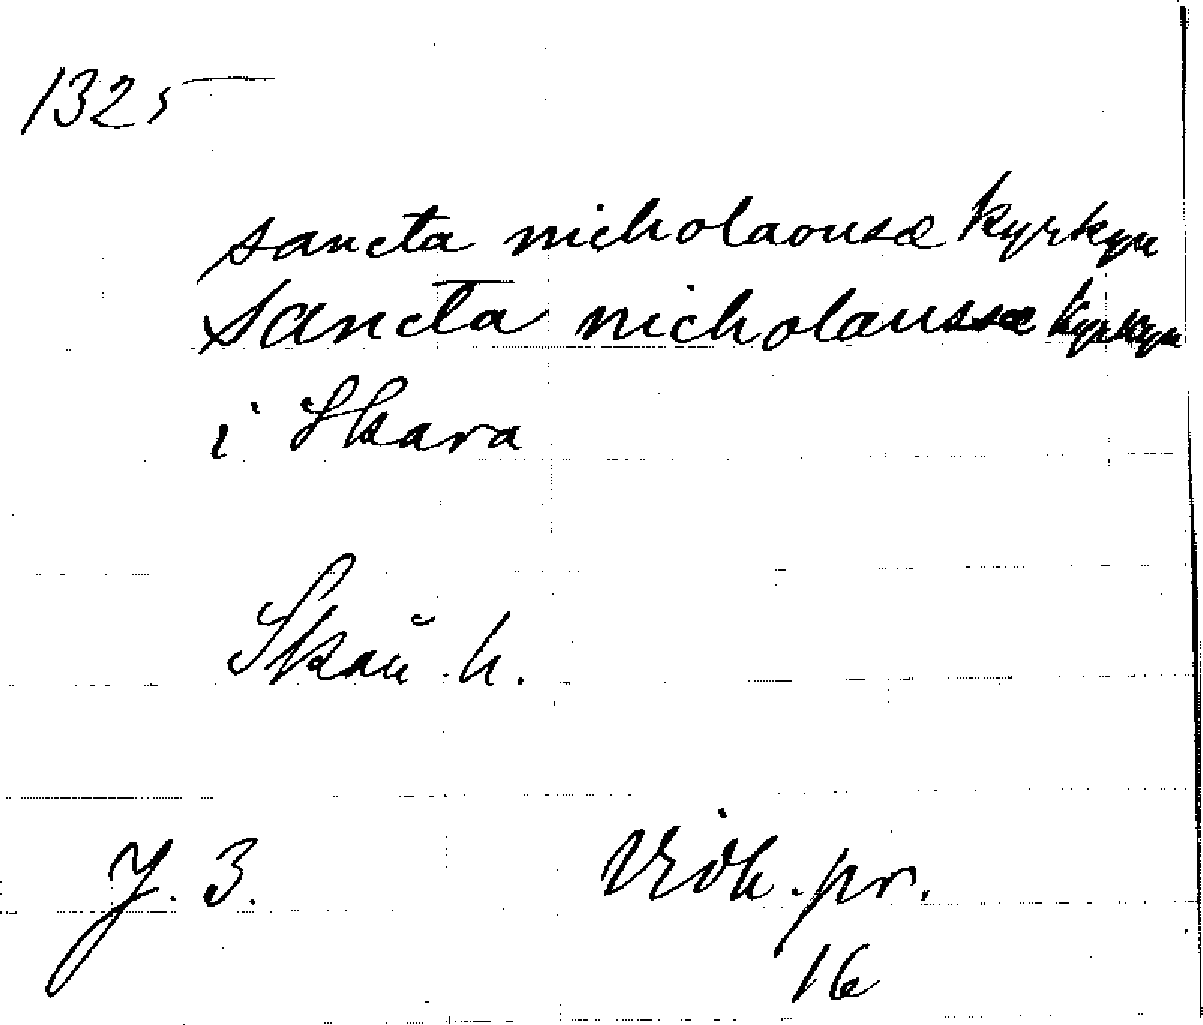 1325
sancta nicholaousæ kyrkyu
sancta nicholaussæ kyrkyu
i Skara
Skån. h.
Y. 3. Vidh. pr.
16